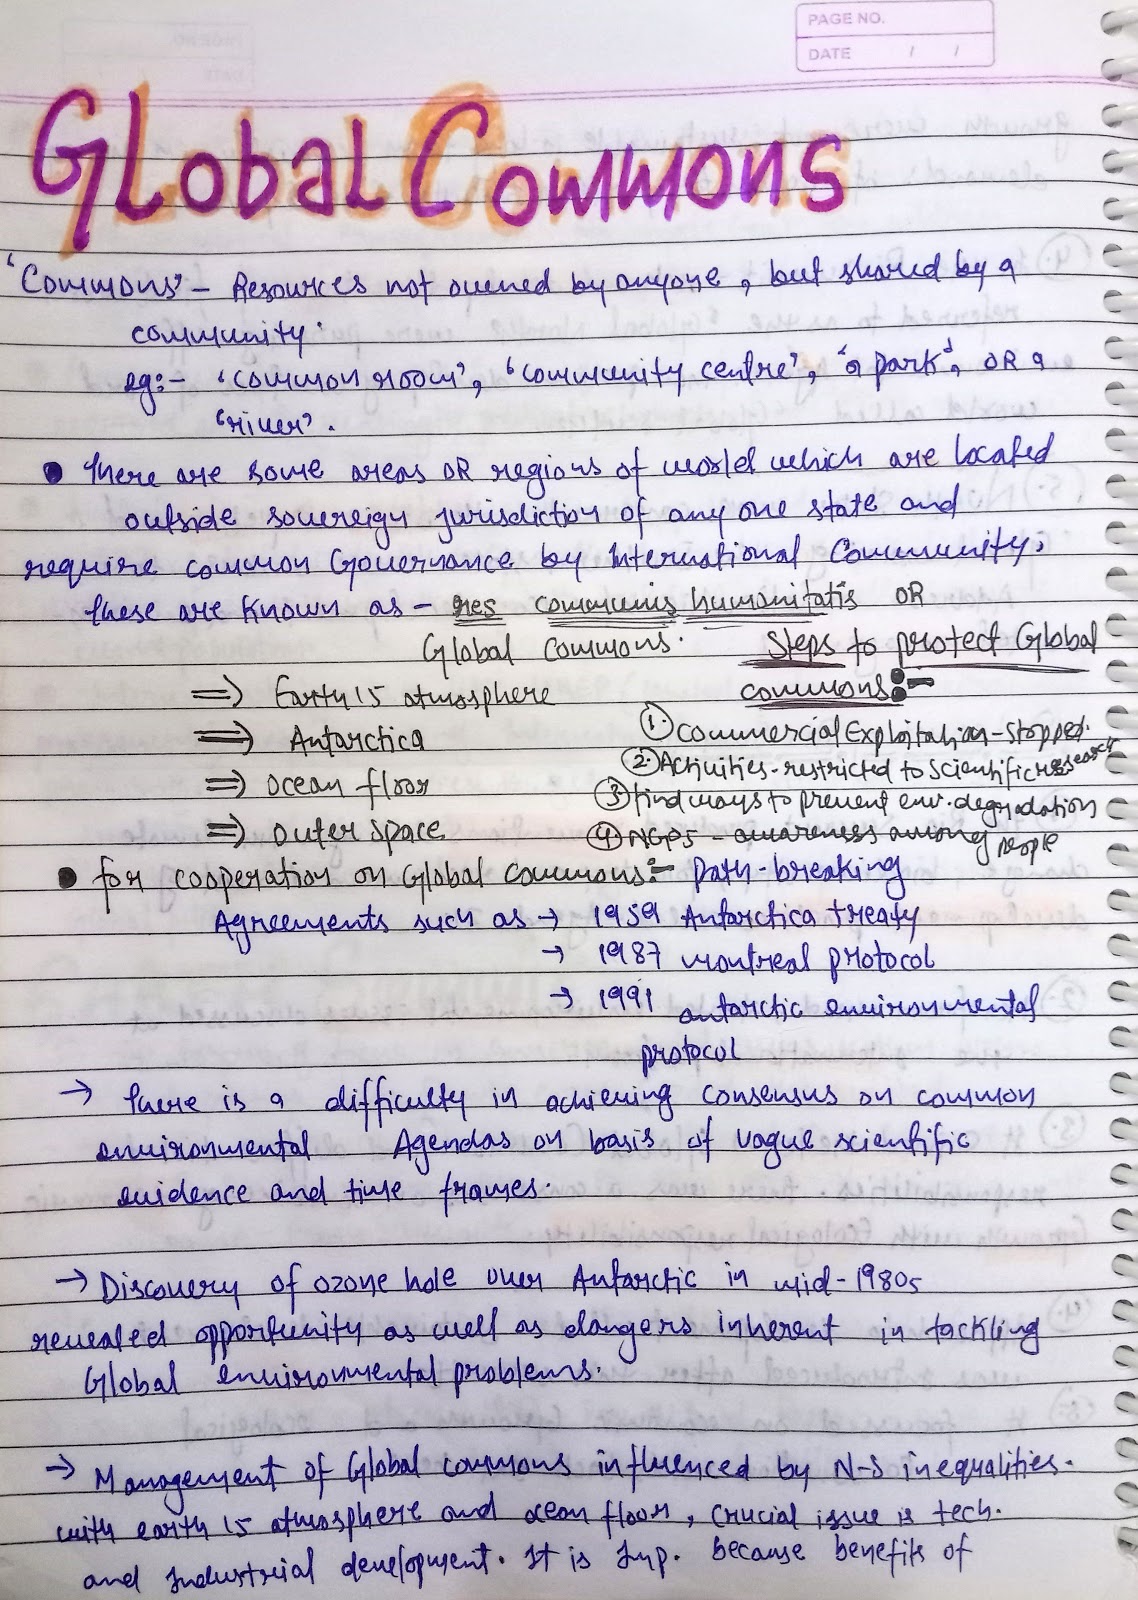 PAGE NO.
DATE / /
Global Commons
'Commons' - Resources not owned by anyone, but shared by a
community.
eg:- 'common room', 'community centre', 'a park', OR a
'river'.
• There are some areas OR regions of world which are located
outside sovereign jurisdiction of any one state and
require common Governance by International Community,
these are known as - res communis humanitatis OR
Global commons.
⇒ Earth's atmosphere
⇒ Antarctica
⇒ Ocean floor
⇒ Outer space
Steps to protect Global
commons:-
1. Commercial Exploitation - Stopped.
2. Activities - restricted to Scientific research
3. find ways to prevent env. degradation
4. NGPS - awareness among
people
• for cooperation on Global commons:- Path-breaking
Agreements such as → 1959 Antarctica treaty
→ 1987 Montreal protocol
→ 1991 antarctic environmental
protocol
→ There is a difficulty in achieving consensus on common
environmental Agendas on basis of vague scientific
evidence and time frames.
→ Discovery of ozone hole over Antarctic in mid-1980s
revealed opportunity as well as dangers inherent in tackling
Global environmental problems.
→ Management of Global commons influenced by N-S inequalities.
with earth's atmosphere and ocean floor, crucial issue is tech.
and Industrial development. It is Imp. because benefits of